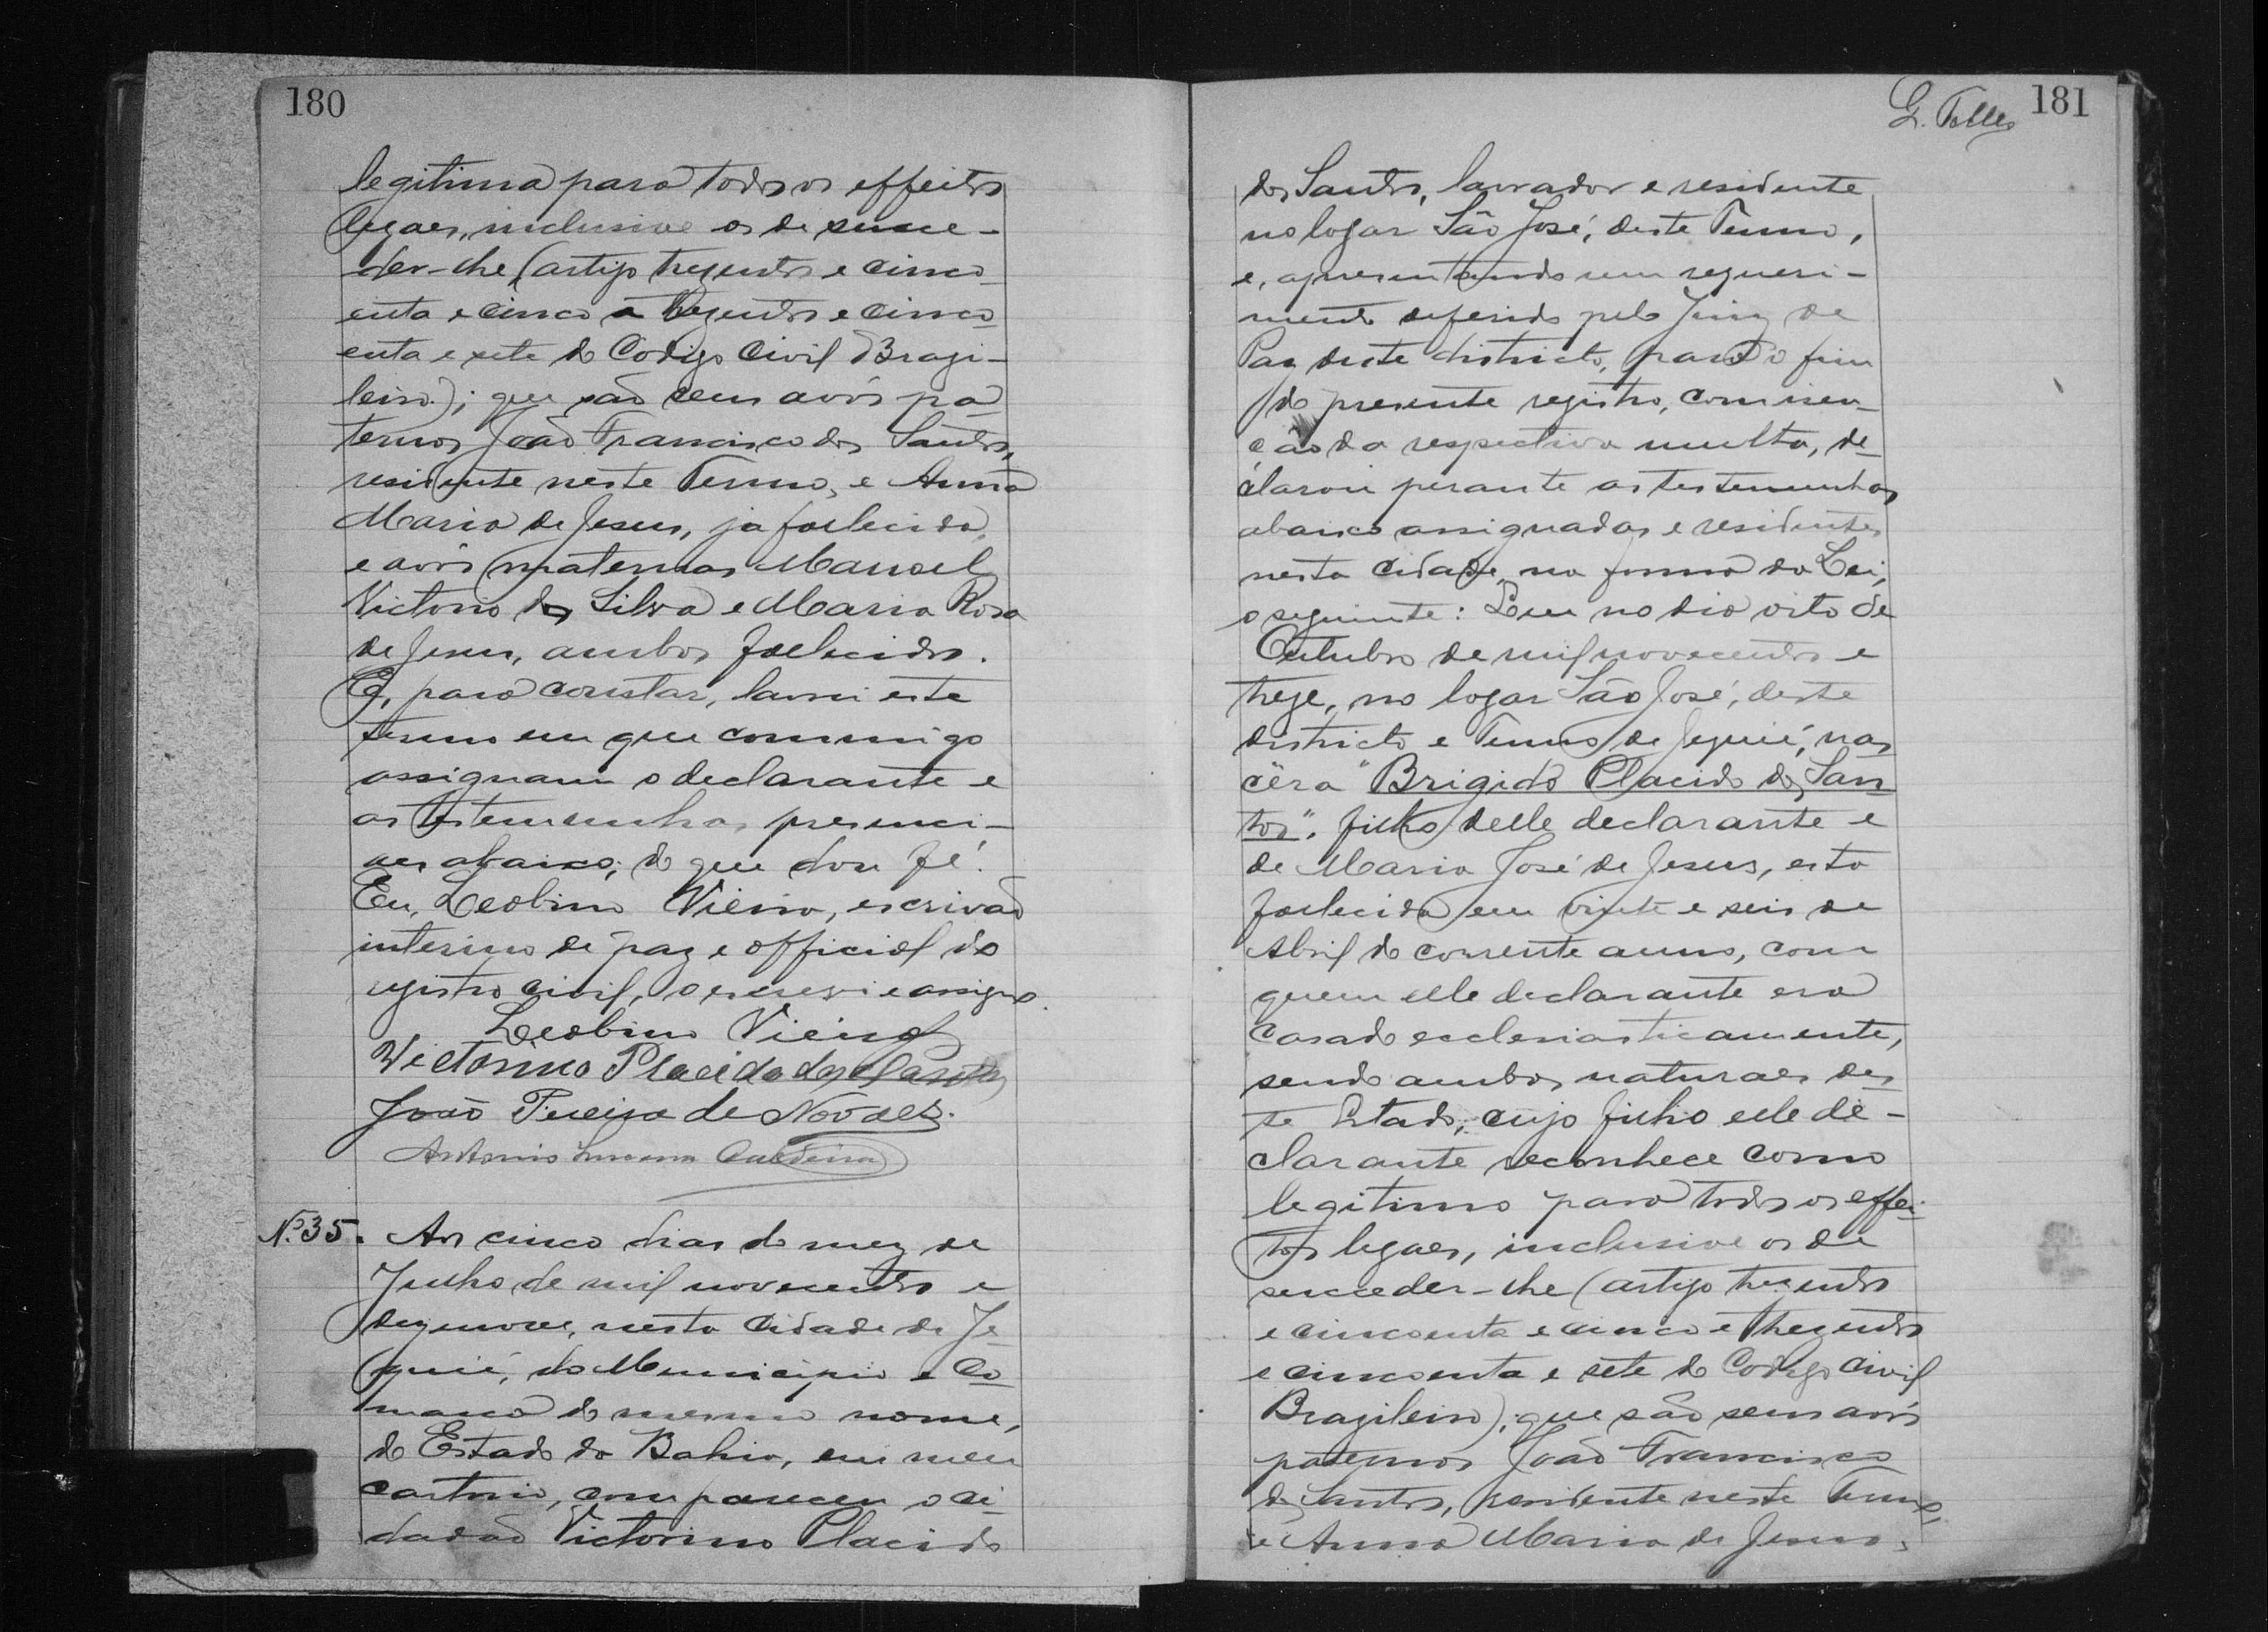 180
legitima para todos os effeitos
legaes, inclusive os de succe-
der-lhe (artigo trezentos e cinco
enta e cinco a trezentos e cinco
enta e sete do Codigo Civil Brazi-
leiro); que são seus avós pa
ternos João Francisco dos Santos,
residente neste Termo, e Anna
Maria de Jesus, já fallecida,
e avós maternos Manoel
Victorio da Silva e Maria Rosa
de Jesus, ambos fallecidos.
E, para constar, lavrei este
termo em que commigo
assignam o declarante e
as testemunhas presenci-
aes abaixo; do que dou fé.
Eu, Leobino Vieira, escrivão
interino de paz e official do
registro civil, o escrevi e assigno.
Leobino Vieira
Victorino Placido dos Santos
João Pereira de Novaes.
Antonio
Nº 35. Aos cinco dias do mez de
Junho de mil novecentos e
dezenove, nesta Cidade de Je
quié, do Municipio e Co
marca do mesmo nome,
do Estado da Bahia, em meu
cartorio, compareceu o ci-
dadão Victorino Placido
181
G. Telles
dos Santos, lavrador e residente
no logar São José, deste Termo,
e, apresentando um requeri-
mento deferido pelo Juiz de
Paz deste districto, para o fim
do presente registro, com isen-
ção da respectiva multa, de-
clarou perante as testemunhas
abaixo assignadas e residentes
nesta cidade, na forma da Lei,
o seguinte: Que no dia oito de
Outubro de mil novecentos e
treze, no logar São José, deste
districto e Termo de Jequié, nas
cêra "Brigido Placido dos San
tos", filho delle declarante e
de Maria José de Jesus, esta
fallecida em vinte e seis de
Abril do corrente anno, com
quem elle declarante era
casado ecclesiasticamente,
sendo ambos naturaes des
te Estado, cujo filho elle de-
clarante reconhece como
legitimo para todos os effei-
tos legaes, inclusive os de
succeder-lhe (artigo trezentos
e cincoenta e cinco e trezentos
e cincoenta e sete do Codigo Civil
Brazileiro); que são seus avós
paternos João Francisco
dos Santos, residente neste Termo,
e Anna Maria de Jesus,